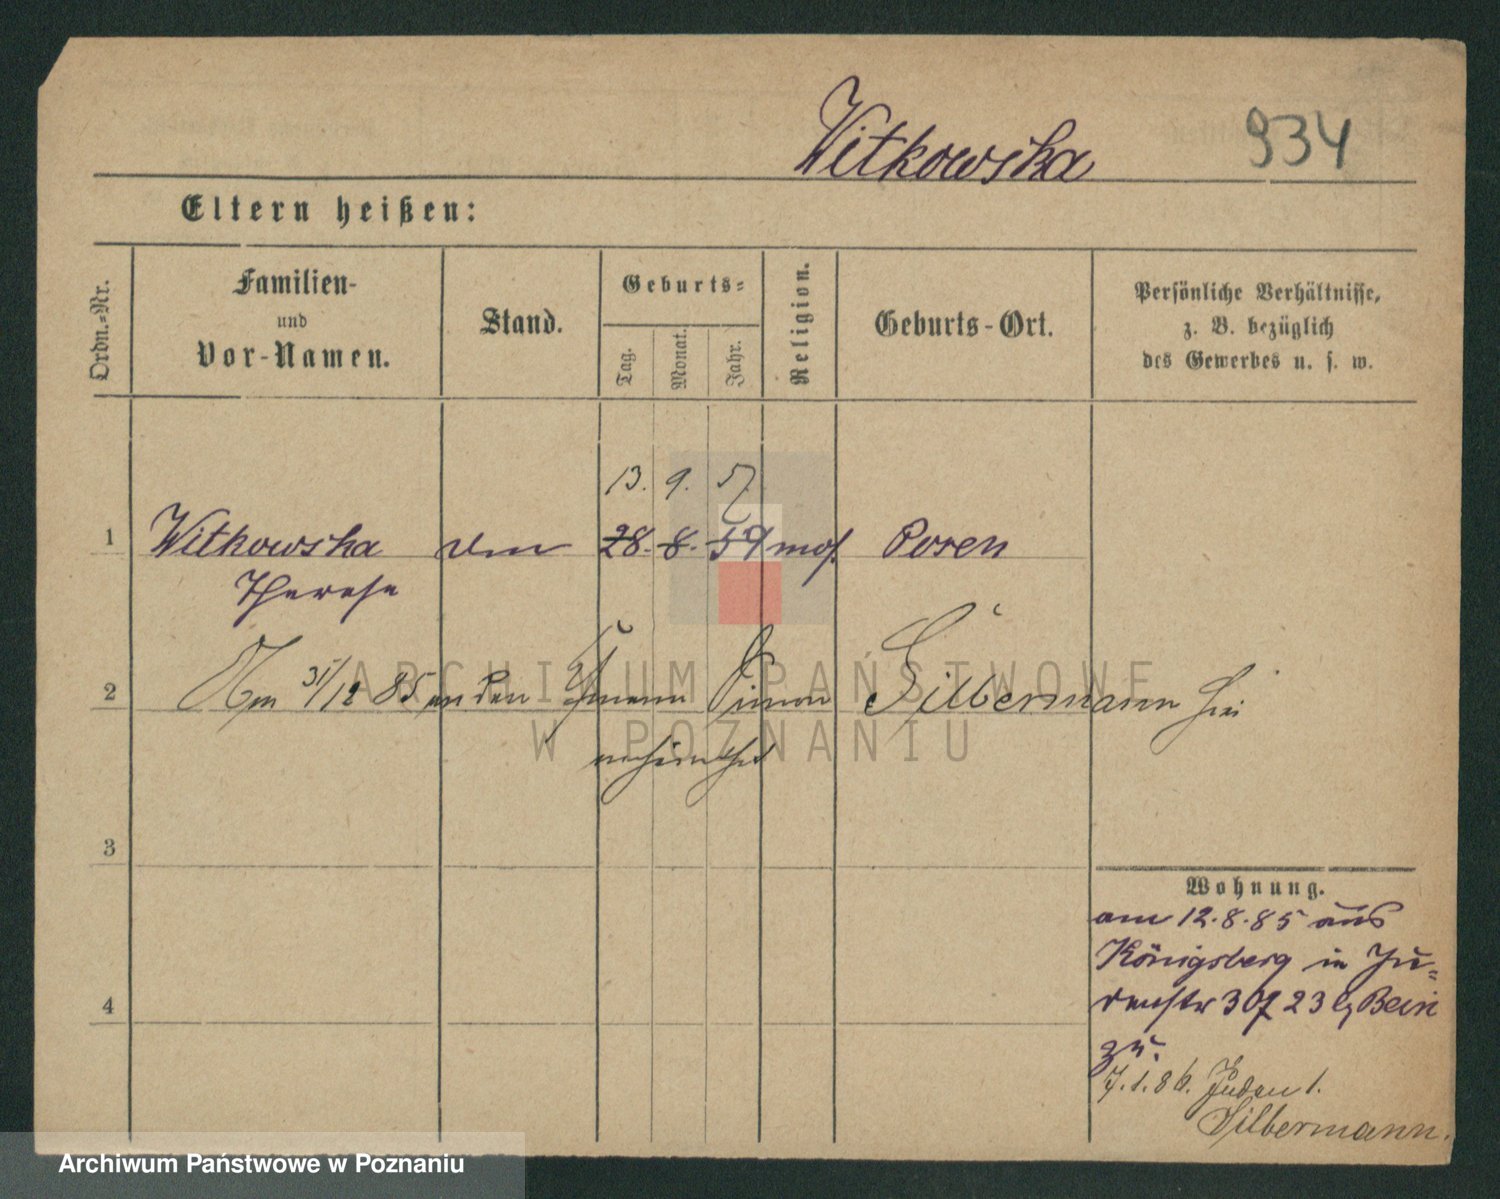 Witkowska 934
Eltern heißen:
Ordn.-Nr.
Familien-
und
Vor-Namen.
Stand.
Geburts-
Tag.
Monat.
Jahr.
Religion.
Geburts-Ort.
Persönliche Verhältnisse,
z. B. bezüglich
des Gewerbes u. s. w.
13. 9. 57
1 Witkowska 28. 8. 59 mos. Posen
Therese
2 Am 31/12 85 an den Simon Silbermann hier
verheirathet
3
4
Wohnung.
am 12.8.85 aus
Königsberg in Ju-
denstr 30 23 Bein
zu.
7.1.86. Juden 1.
Silbermann.
ARCHIWUM PAŃSTWOWE
W POZNANIU
Archiwum Państwowe w Poznaniu